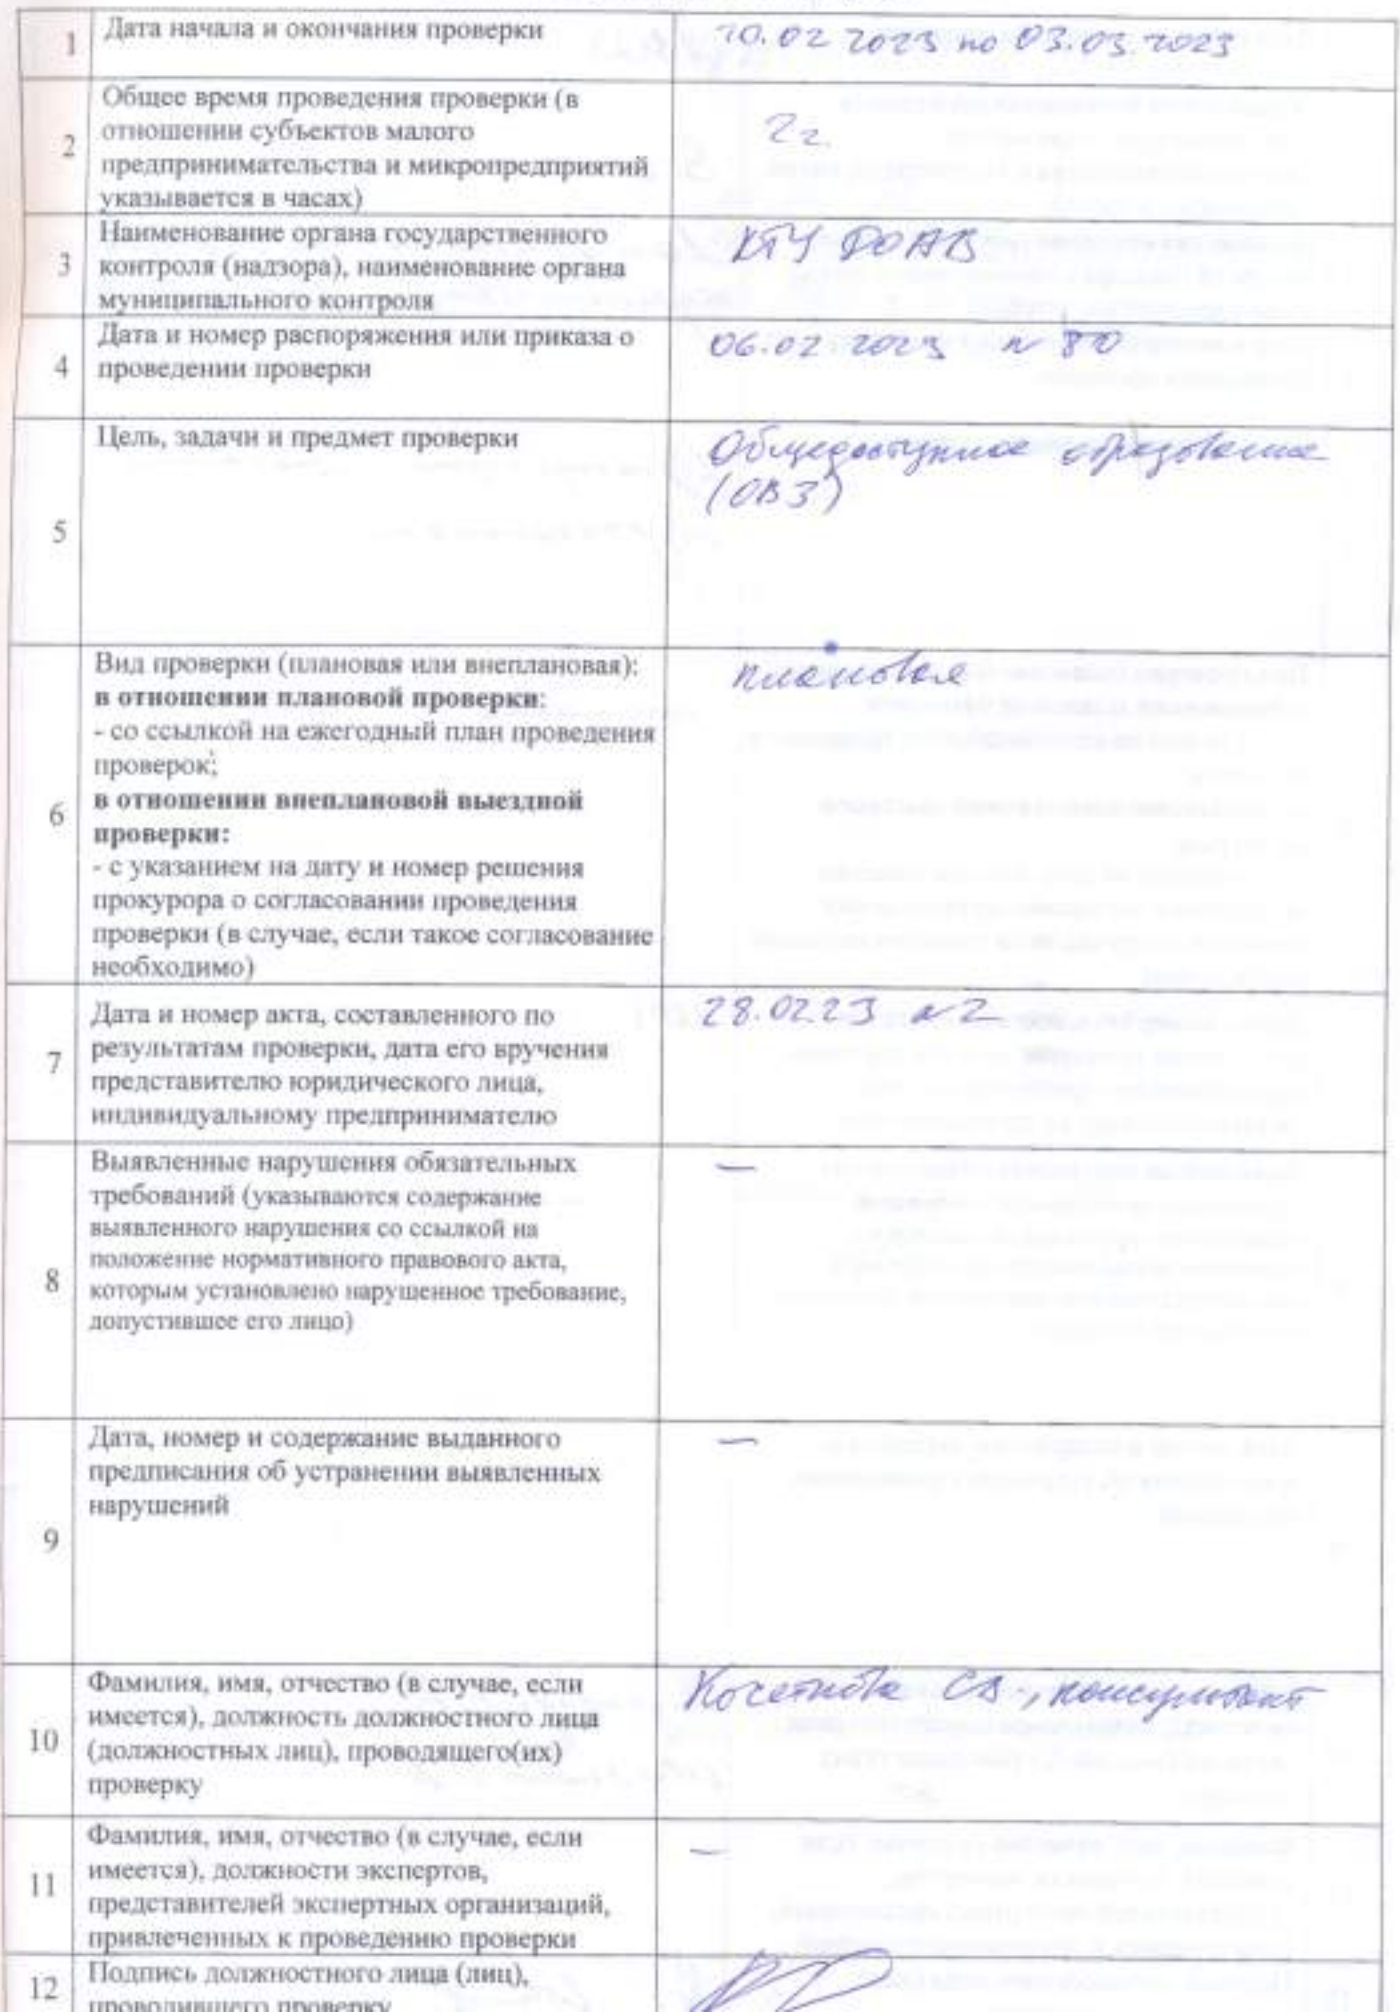 1
Дата начала и окончания проверки
20.02 2023 по 03.03.2023
2
Общее время проведения проверки (в
отношении субъектов малого
предпринимательства и микропредприятий
указывается в часах)
2г.
3
Наименование органа государственного
контроля (надзора), наименование органа
муниципального контроля
4
Дата и номер распоряжения или приказа о
проведении проверки
06.02 2023
5
Цель, задачи и предмет проверки
Общедоступное образование
(ОВЗ)
6
Вид проверки (плановая или внеплановая):
в отношении плановой проверки:
- со ссылкой на ежегодный план проведения
проверок;
в отношении внеплановой выездной
проверки:
- с указанием на дату и номер решения
прокурора о согласовании проведения
проверки (в случае, если такое согласование
необходимо)
плановая
7
Дата и номер акта, составленного по
результатам проверки, дата его вручения
представителю юридического лица,
индивидуальному предпринимателю
28.02.23 № 2
8
Выявленные нарушения обязательных
требований (указываются содержание
выявленного нарушения со ссылкой на
положение нормативного правового акта,
которым установлено нарушенное требование,
допустившее его лицо)
—
9
Дата, номер и содержание выданного
предписания об устранении выявленных
нарушений
—
10
Фамилия, имя, отчество (в случае, если
имеется), должность должностного лица
(должностных лиц), проводящего(их)
проверку
Кочеткова СВ, консультант
11
Фамилия, имя, отчество (в случае, если
имеется), должности экспертов,
представителей экспертных организаций,
привлеченных к проведению проверки
—
12
Подпись должностного лица (лиц),
проводившего проверку